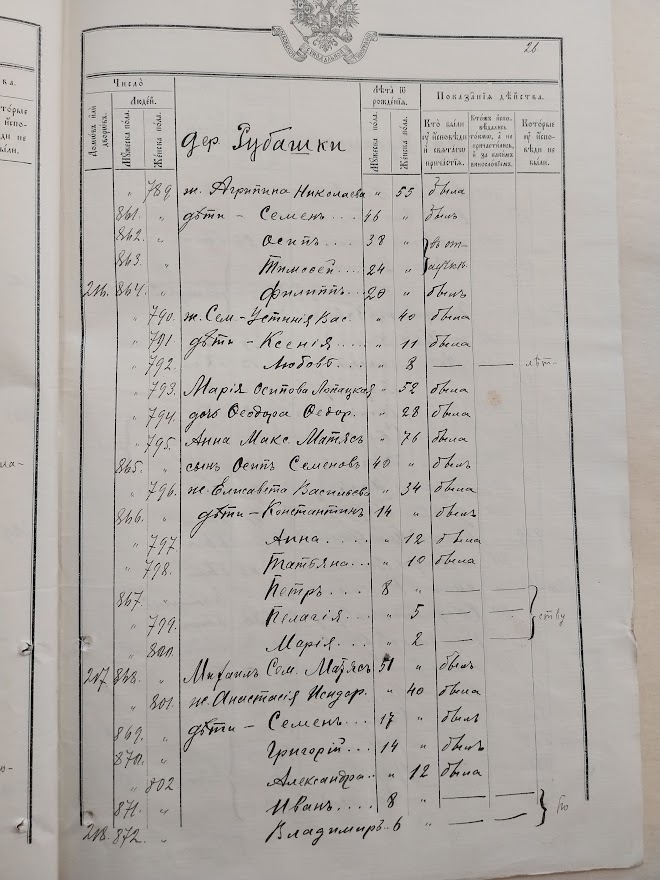 26
Число
Людей.
Домовъ или дворовъ.
Мужеска пола.
Женска пола.
дер. Рубашки
Лѣта ѿ рожденїя.
Мужеска пола.
Женска пола.
Показанїя дѣйства.
Кто были у исповѣди и святаго причастїя.
Которые у исповѣди не были.
" 789 ж. Агрипина Николаева " 55 была
861. " дѣти - Семенъ... 46 " былъ
862. " Осипъ... 38 " въ от-
863. " Тимоѳей... 24 " лучкѣ
216. 864. " Филиппъ... 20 " былъ
" 790. ж. Сем - Устинія Вас. " 40 была
" 791 дѣти - Ксенія.... " 11 была
" 792. Любовь... " 8 — — лѣт-
" 793. Марія Осипова Лопацкая " 52 была
" 794. дочь Ѳеодора Ѳедор. " 28 была
" 795. Анна Макс. Матясъ " 76 была
865. " сынъ Осипъ Семеновъ 40 " былъ
" 796. ж. Елисавета Васильева " 34 была
866. " дѣти - Константинъ 14 " былъ
" 797 Анна..... " 12 была
" 798. Татьяна... " 10 была
867. " Петръ... 8 " — —
" 799. Пелагія... " 5 — — ству
" 800. Марія.... " 2 — —
217 868. " Михаилъ Сем. Матясъ 51 " былъ
" 801. ж. Анастасія Исидор. " 40 была
869. " дѣти - Семенъ... 17 " былъ
870. " Григорій... 14 " былъ
" 802 Александра.. " 12 была
871. " Иванъ.... 8 " — —
218. 872. " Владимиръ.. 6 " — — По